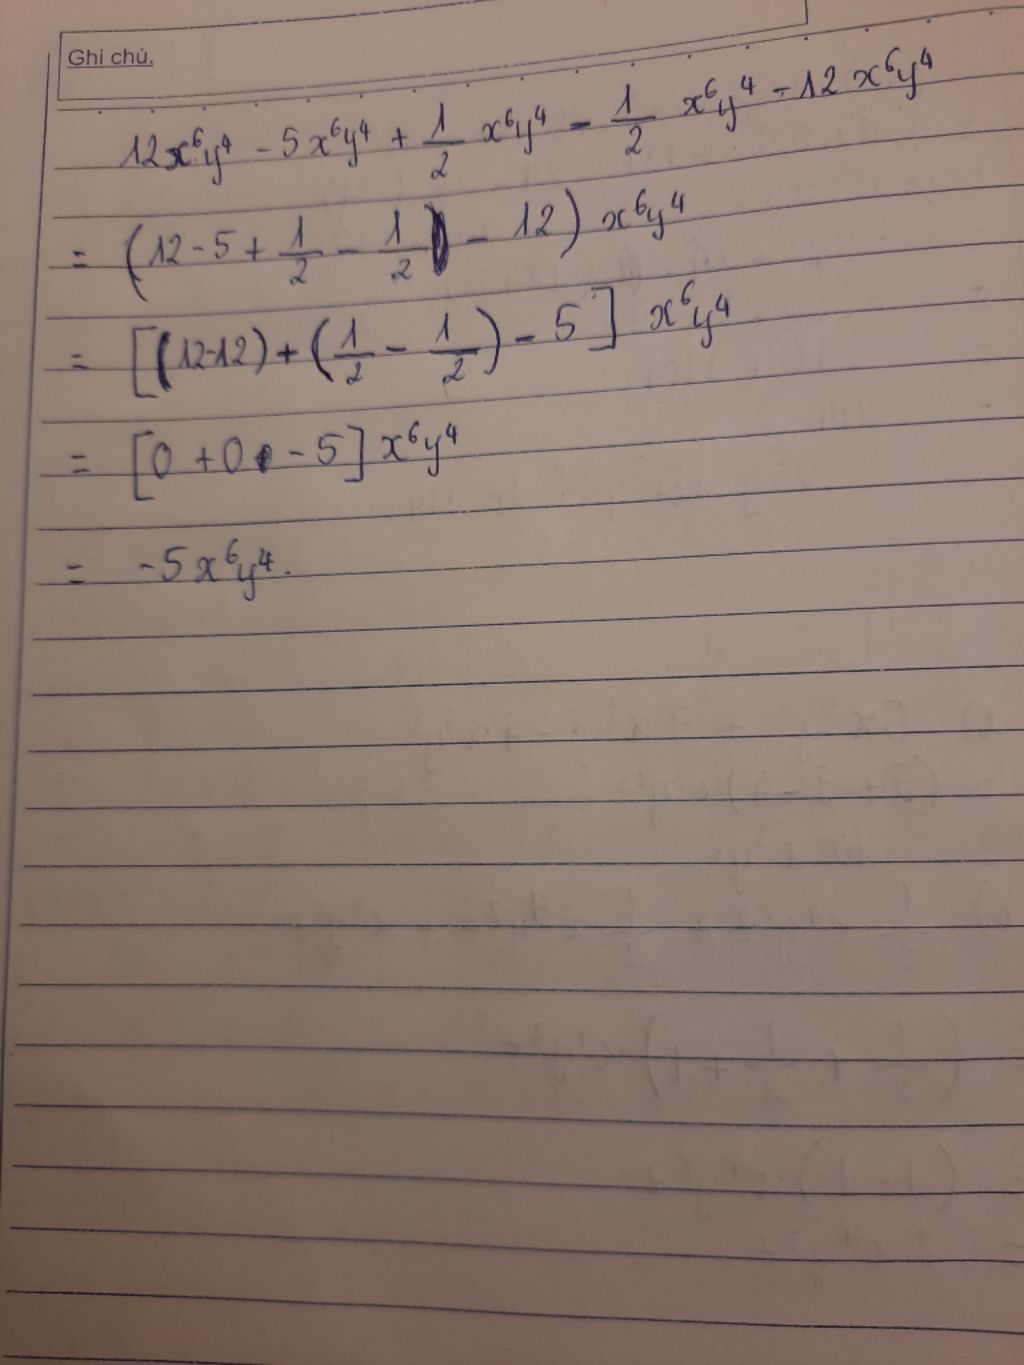 Ghi chú.
12x⁶y⁴ - 5x⁶y⁴ + 1/2 x⁶y⁴ - 1/2 x⁶y⁴ - 12x⁶y⁴
= (12 - 5 + 1/2 - 1/2 - 12) x⁶y⁴
= [(12-12) + (1/2 - 1/2) - 5] x⁶y⁴
= [0 + 0 - 5] x⁶y⁴
= -5x⁶y⁴.